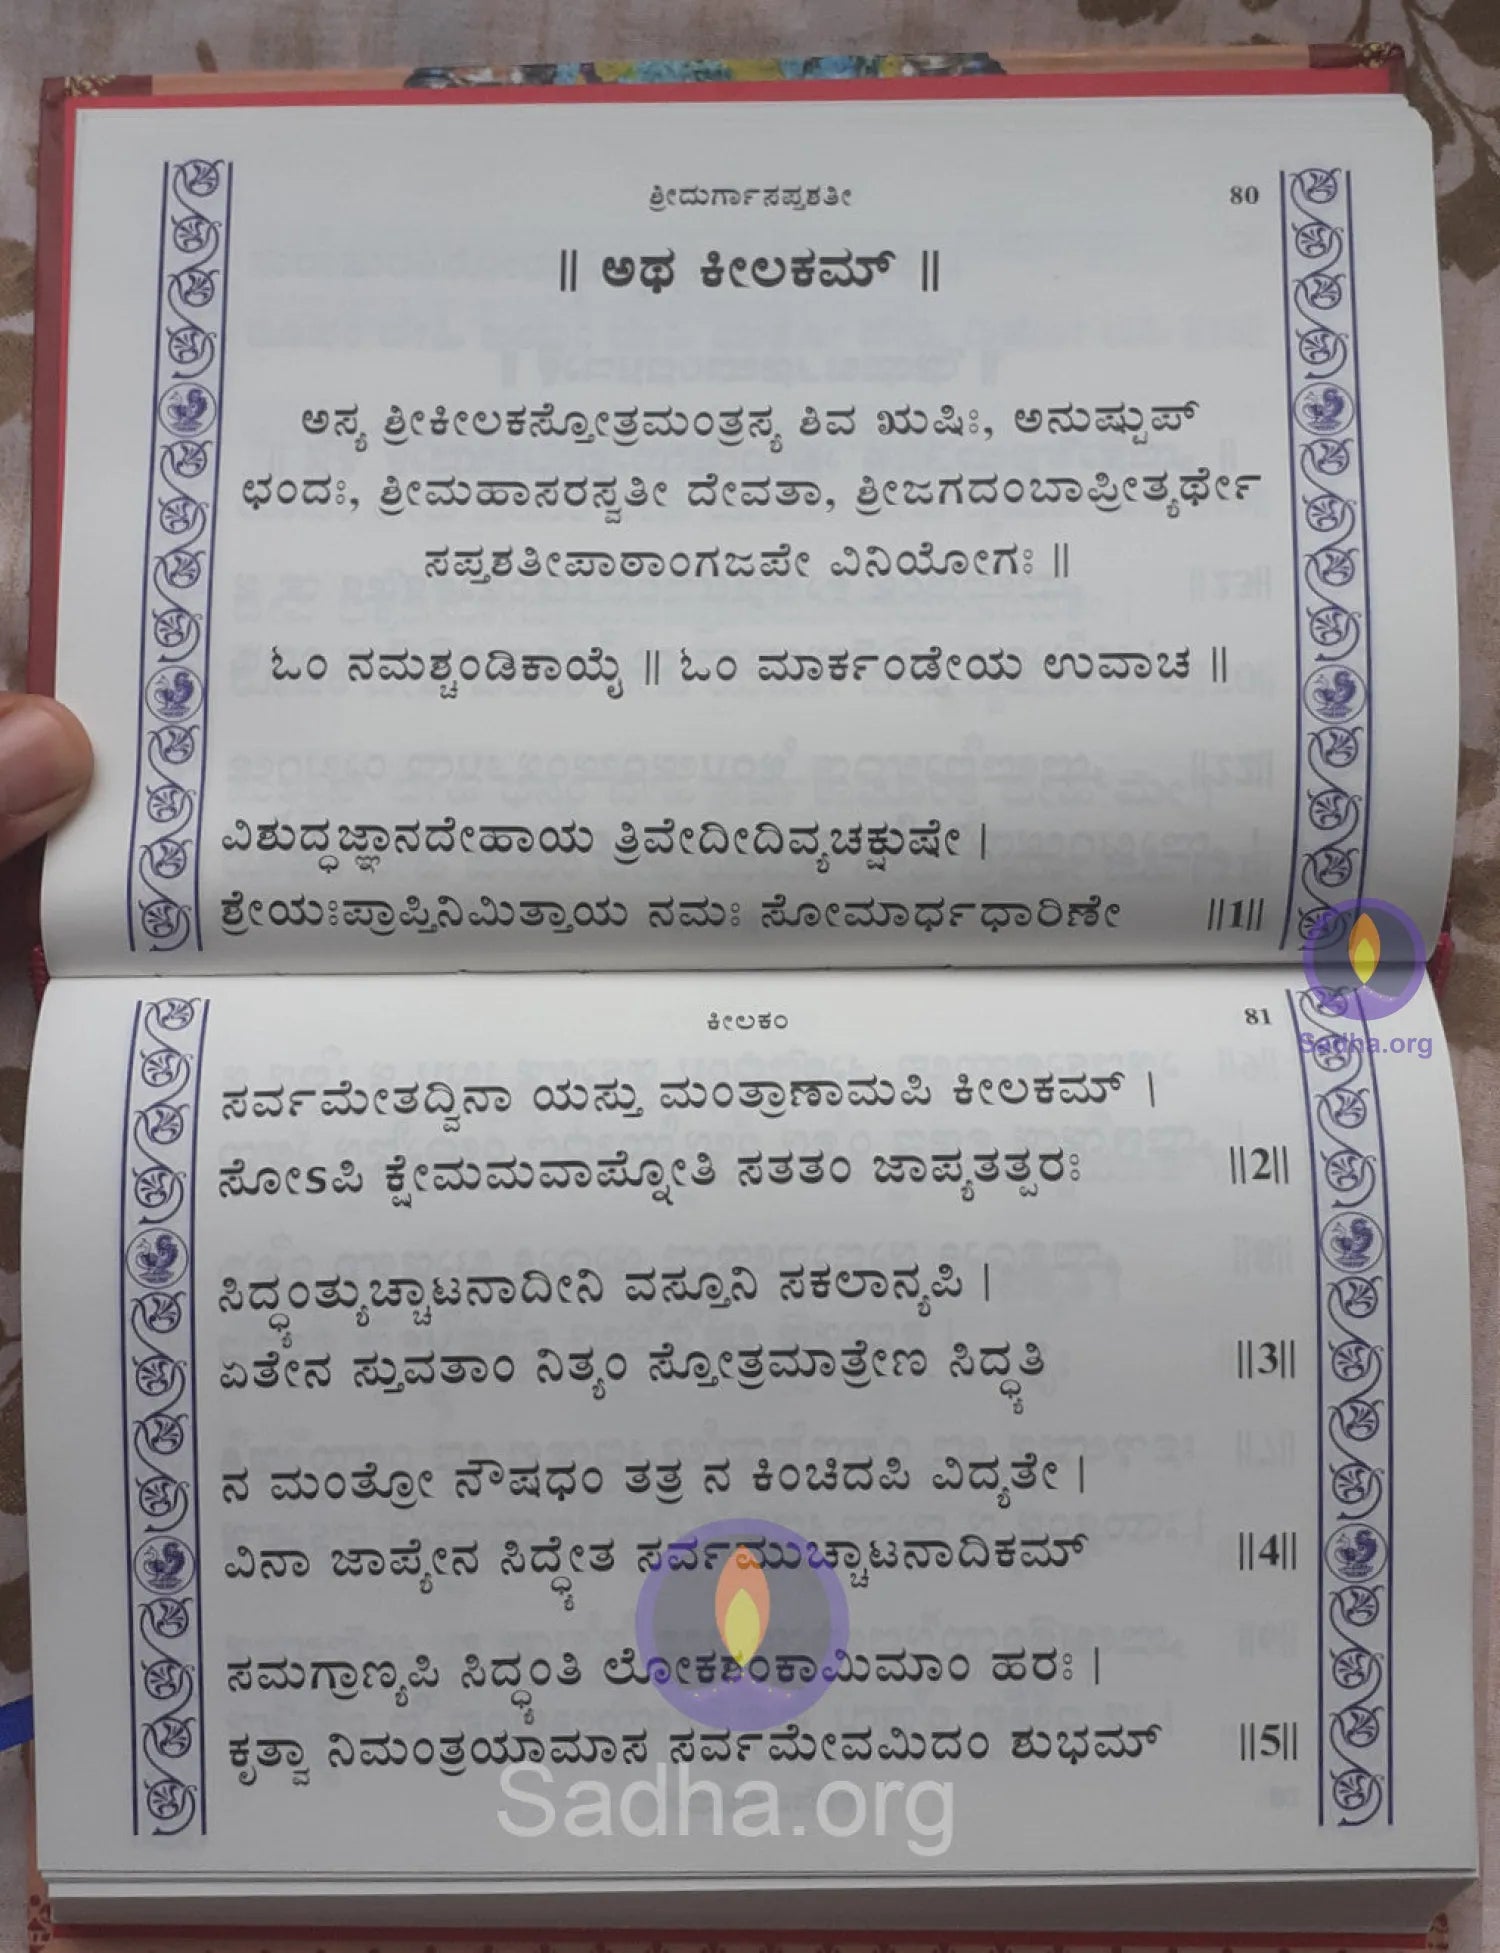 ಶ್ರೀದುರ್ಗಾಸಪ್ತಶತೀ 80
॥ ಅಥ ಕೀಲಕಮ್ ॥
ಅಸ್ಯ ಶ್ರೀಕೀಲಕಸ್ತೋತ್ರಮಂತ್ರಸ್ಯ ಶಿವ ಋಷಿಃ, ಅನುಷ್ಟುಪ್
ಛಂದಃ, ಶ್ರೀಮಹಾಸರಸ್ವತೀ ದೇವತಾ, ಶ್ರೀಜಗದಂಬಾಪ್ರೀತ್ಯರ್ಥೇ
ಸಪ್ತಶತೀಪಾಠಾಂಗಜಪೇ ವಿನಿಯೋಗಃ ॥
ಓಂ ನಮಶ್ಚಂಡಿಕಾಯೈ ॥ ಓಂ ಮಾರ್ಕಂಡೇಯ ಉವಾಚ ॥
ವಿಶುದ್ಧಜ್ಞಾನದೇಹಾಯ ತ್ರಿವೇದೀದಿವ್ಯಚಕ್ಷುಷೇ ।
ಶ್ರೇಯಃಪ್ರಾಪ್ತಿನಿಮಿತ್ತಾಯ ನಮಃ ಸೋಮಾರ್ಧಧಾರಿಣೇ ॥1॥
ಕೀಲಕಂ 81
Sadha.org
ಸರ್ವಮೇತದ್ವಿನಾ ಯಸ್ತು ಮಂತ್ರಾಣಾಮಪಿ ಕೀಲಕಮ್ ।
ಸೋಽಪಿ ಕ್ಷೇಮಮವಾಪ್ನೋತಿ ಸತತಂ ಜಾಪ್ಯತತ್ಪರಃ ॥2॥
ಸಿದ್ಧ್ಯಂತ್ಯುಚ್ಚಾಟನಾದೀನಿ ವಸ್ತೂನಿ ಸಕಲಾನ್ಯಪಿ ।
ಏತೇನ ಸ್ತುವತಾಂ ನಿತ್ಯಂ ಸ್ತೋತ್ರಮಾತ್ರೇಣ ಸಿದ್ಧ್ಯತಿ ॥3॥
ನ ಮಂತ್ರೋ ನೌಷಧಂ ತತ್ರ ನ ಕಿಂಚಿದಪಿ ವಿದ್ಯತೇ ।
ವಿನಾ ಜಾಪ್ಯೇನ ಸಿದ್ಧ್ಯೇತ ಸರ್ವಮುಚ್ಚಾಟನಾದಿಕಮ್ ॥4॥
ಸಮಗ್ರಾಣ್ಯಪಿ ಸಿದ್ಧ್ಯಂತಿ ಲೋಕಶಂಕಾಮಿಮಾಂ ಹರಃ ।
ಕೃತ್ವಾ ನಿಮಂತ್ರಯಾಮಾಸ ಸರ್ವಮೇವಮಿದಂ ಶುಭಮ್ ॥5॥
Sadha.org